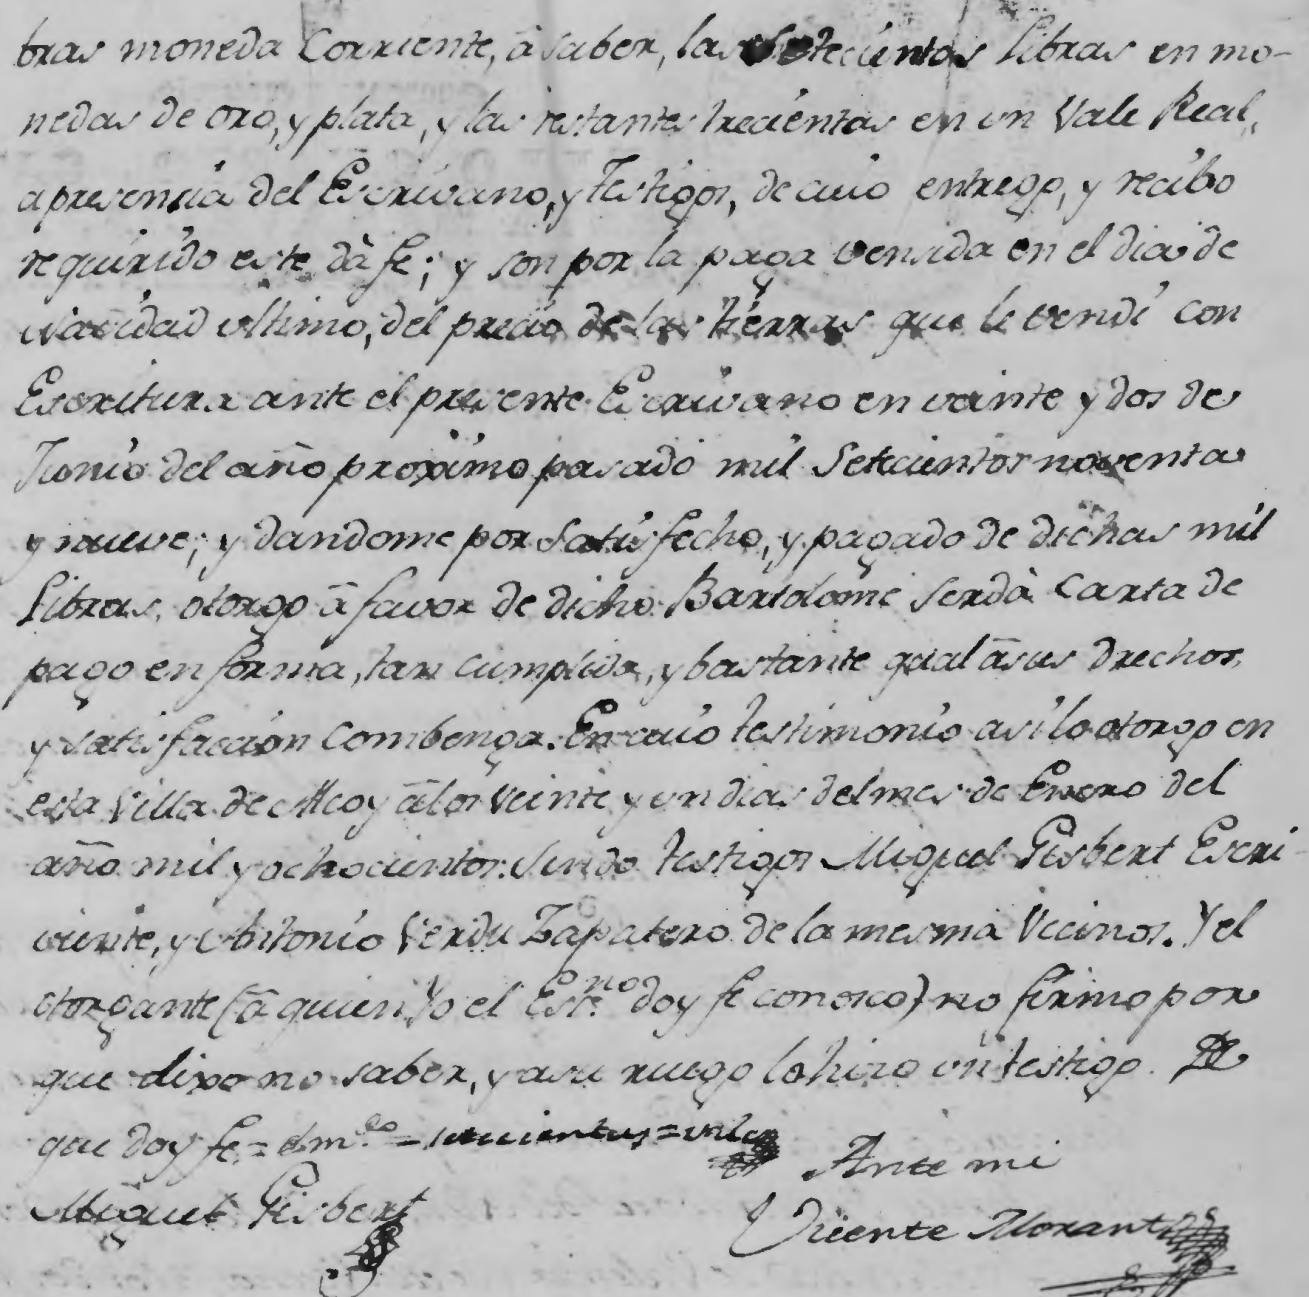 bras moneda Corriente, â saber, las Setecientas Libras en mo-
nedas de oro, y plata, y las restantes trecientas en un Vale Real,
a presencia del Escrivano, y Testigos, de cuio entrego, y recibo
requirido este dà fe; y son por la paga vensida en el dia de
Navidad ultimo, del precio de las tierras que le vendi con
Escritura ante el presente Escrivano en veinte y dos de
Junio del año proximo pasado mil Setecientos noventa
y nueve; y dandome por satisfecho, y pagado de dichas mil
Libras, otorgo â favor de dicho Bartolome Serdà Carta de
pago en forma, tan cumplida, y bastante qual â sus drechos,
y satisfaccion combenga. En cuio testimonio asi lo otorgo en
esta Villa de Alcoy â los Veinte y un dias del mes de Enero del
año mil y ochocientos. Siendo testigos Miguel Gisbert Escri-
viente, y Antonio Verdu Zapatero de la mesma Vecinos. Y el
otorgante (â quien Yo el Esc.no doy fe conosco) no firmo por
que dixo no saber, y a su ruego lo hizo un testigo. De
que doy fe = Enm.do = setecientas = vale
Ante mi
Miguel Gisbert
Vicente Morant